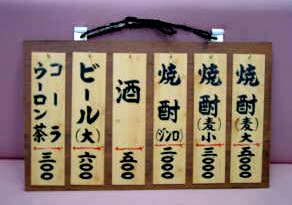 焼酎(麦大)
五〇〇〇
焼酎(麦小)
三〇〇〇
焼酎(ジンロ)
二〇〇〇
酒
五〇〇
ビール(大)
六〇〇
コーラ
ウーロン茶
三〇〇